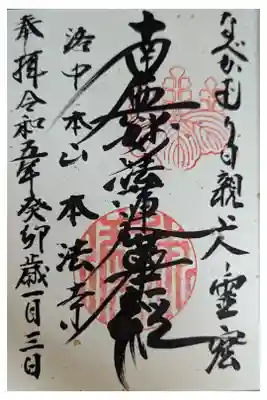 なべかむり日親大上人霊窟
南無妙法蓮華経
洛中本山 本法寺
奉拝 令和五年癸卯歳一月三日